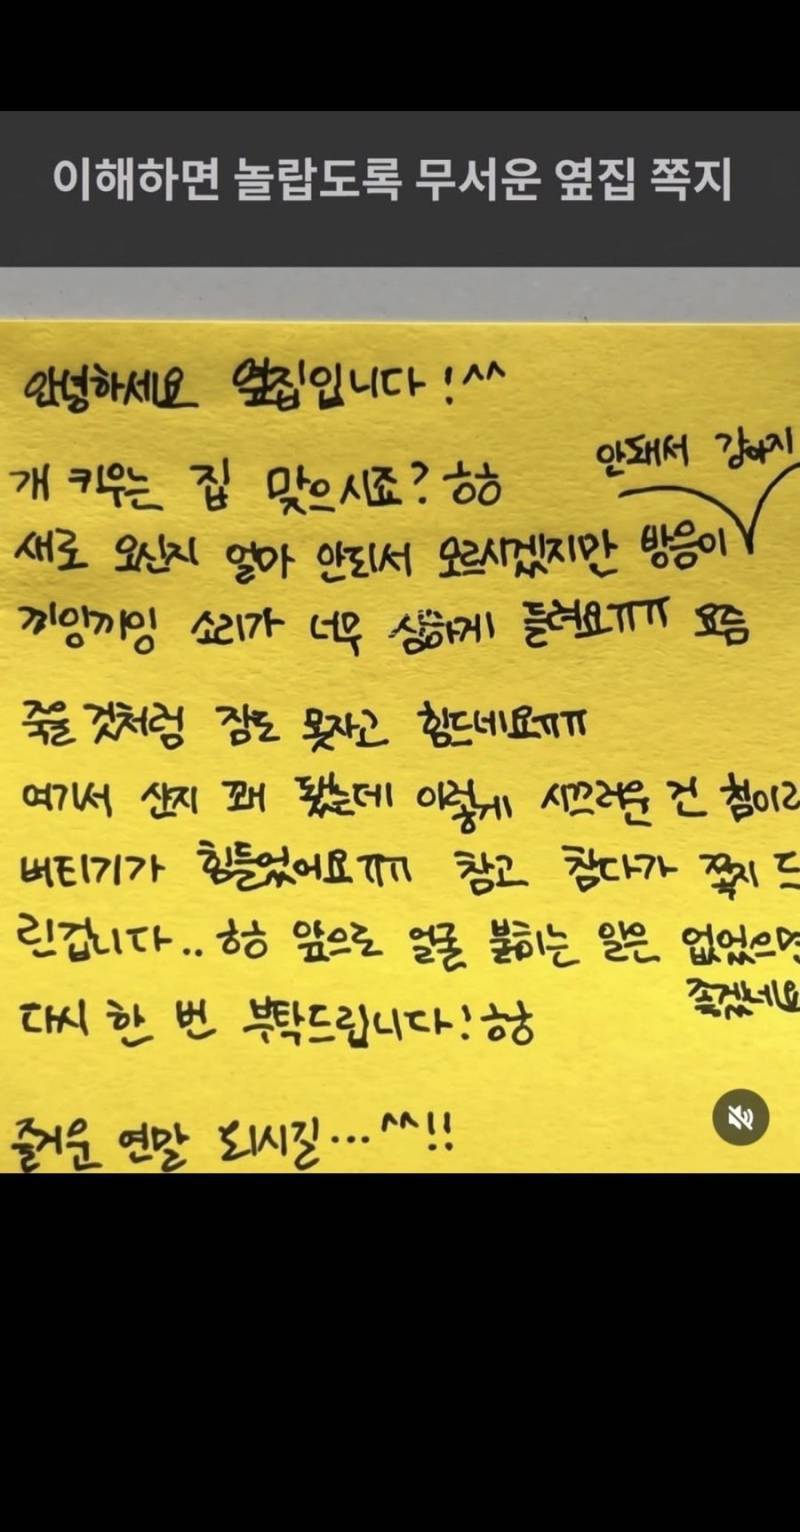 이해하면 놀랍도록 무서운 옆집 쪽지
안녕하세요 옆집입니다!^^
개 키우는 집 맞으시죠? ㅎㅎ
안돼서 강아지
새로 오신지 얼마 안되서 모르시겠지만 방음이
끼잉끼잉 소리가 너무 심하게 들려요ㅠㅠ 요즘
죽을 것처럼 잠도 못자고 힘드네요ㅠㅠ
여기서 산지 꽤 됐는데 이렇게 시끄러운 건 첨이라
버티기가 힘들었어요ㅠㅠ 참고 참다가 쪽지 드
린겁니다.. ㅎㅎ 앞으로 얼굴 붉히는 일은 없었으면
좋겠네요
다시 한 번 부탁드립니다! ㅎㅎ
즐거운 연말 되시길... ^^!!